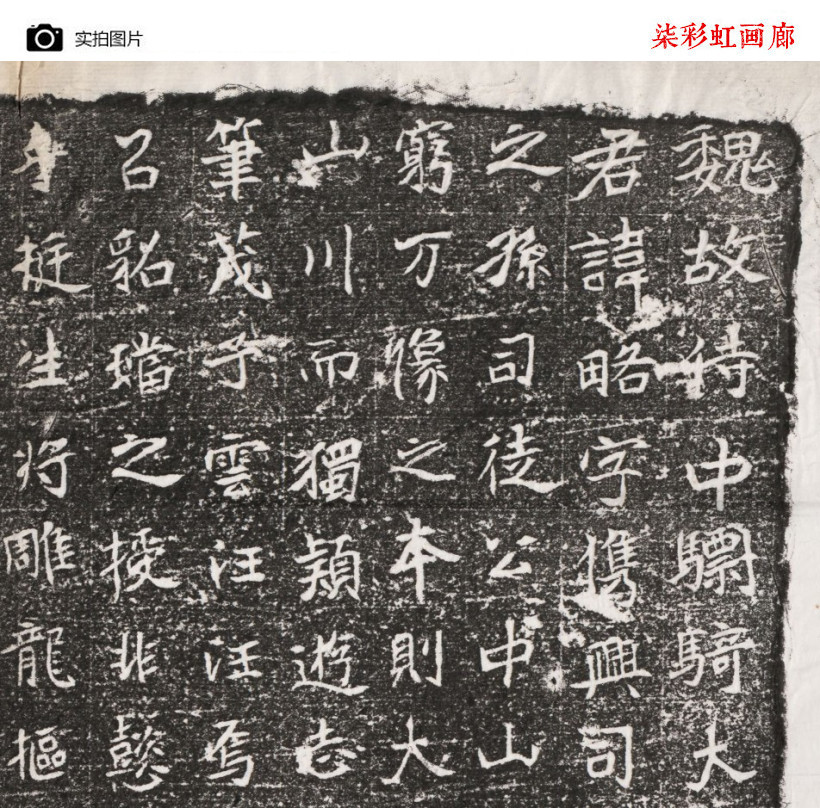 实拍图片
柒彩虹画廊
魏故侍中驃騎大
君諱略字儁興司
之孫司徒公中山
窮万像之本則大
山川而獨穎遊志
筆茂子雲汪汪焉
㠯貂璫之授非懿
挺生将雕龍樞